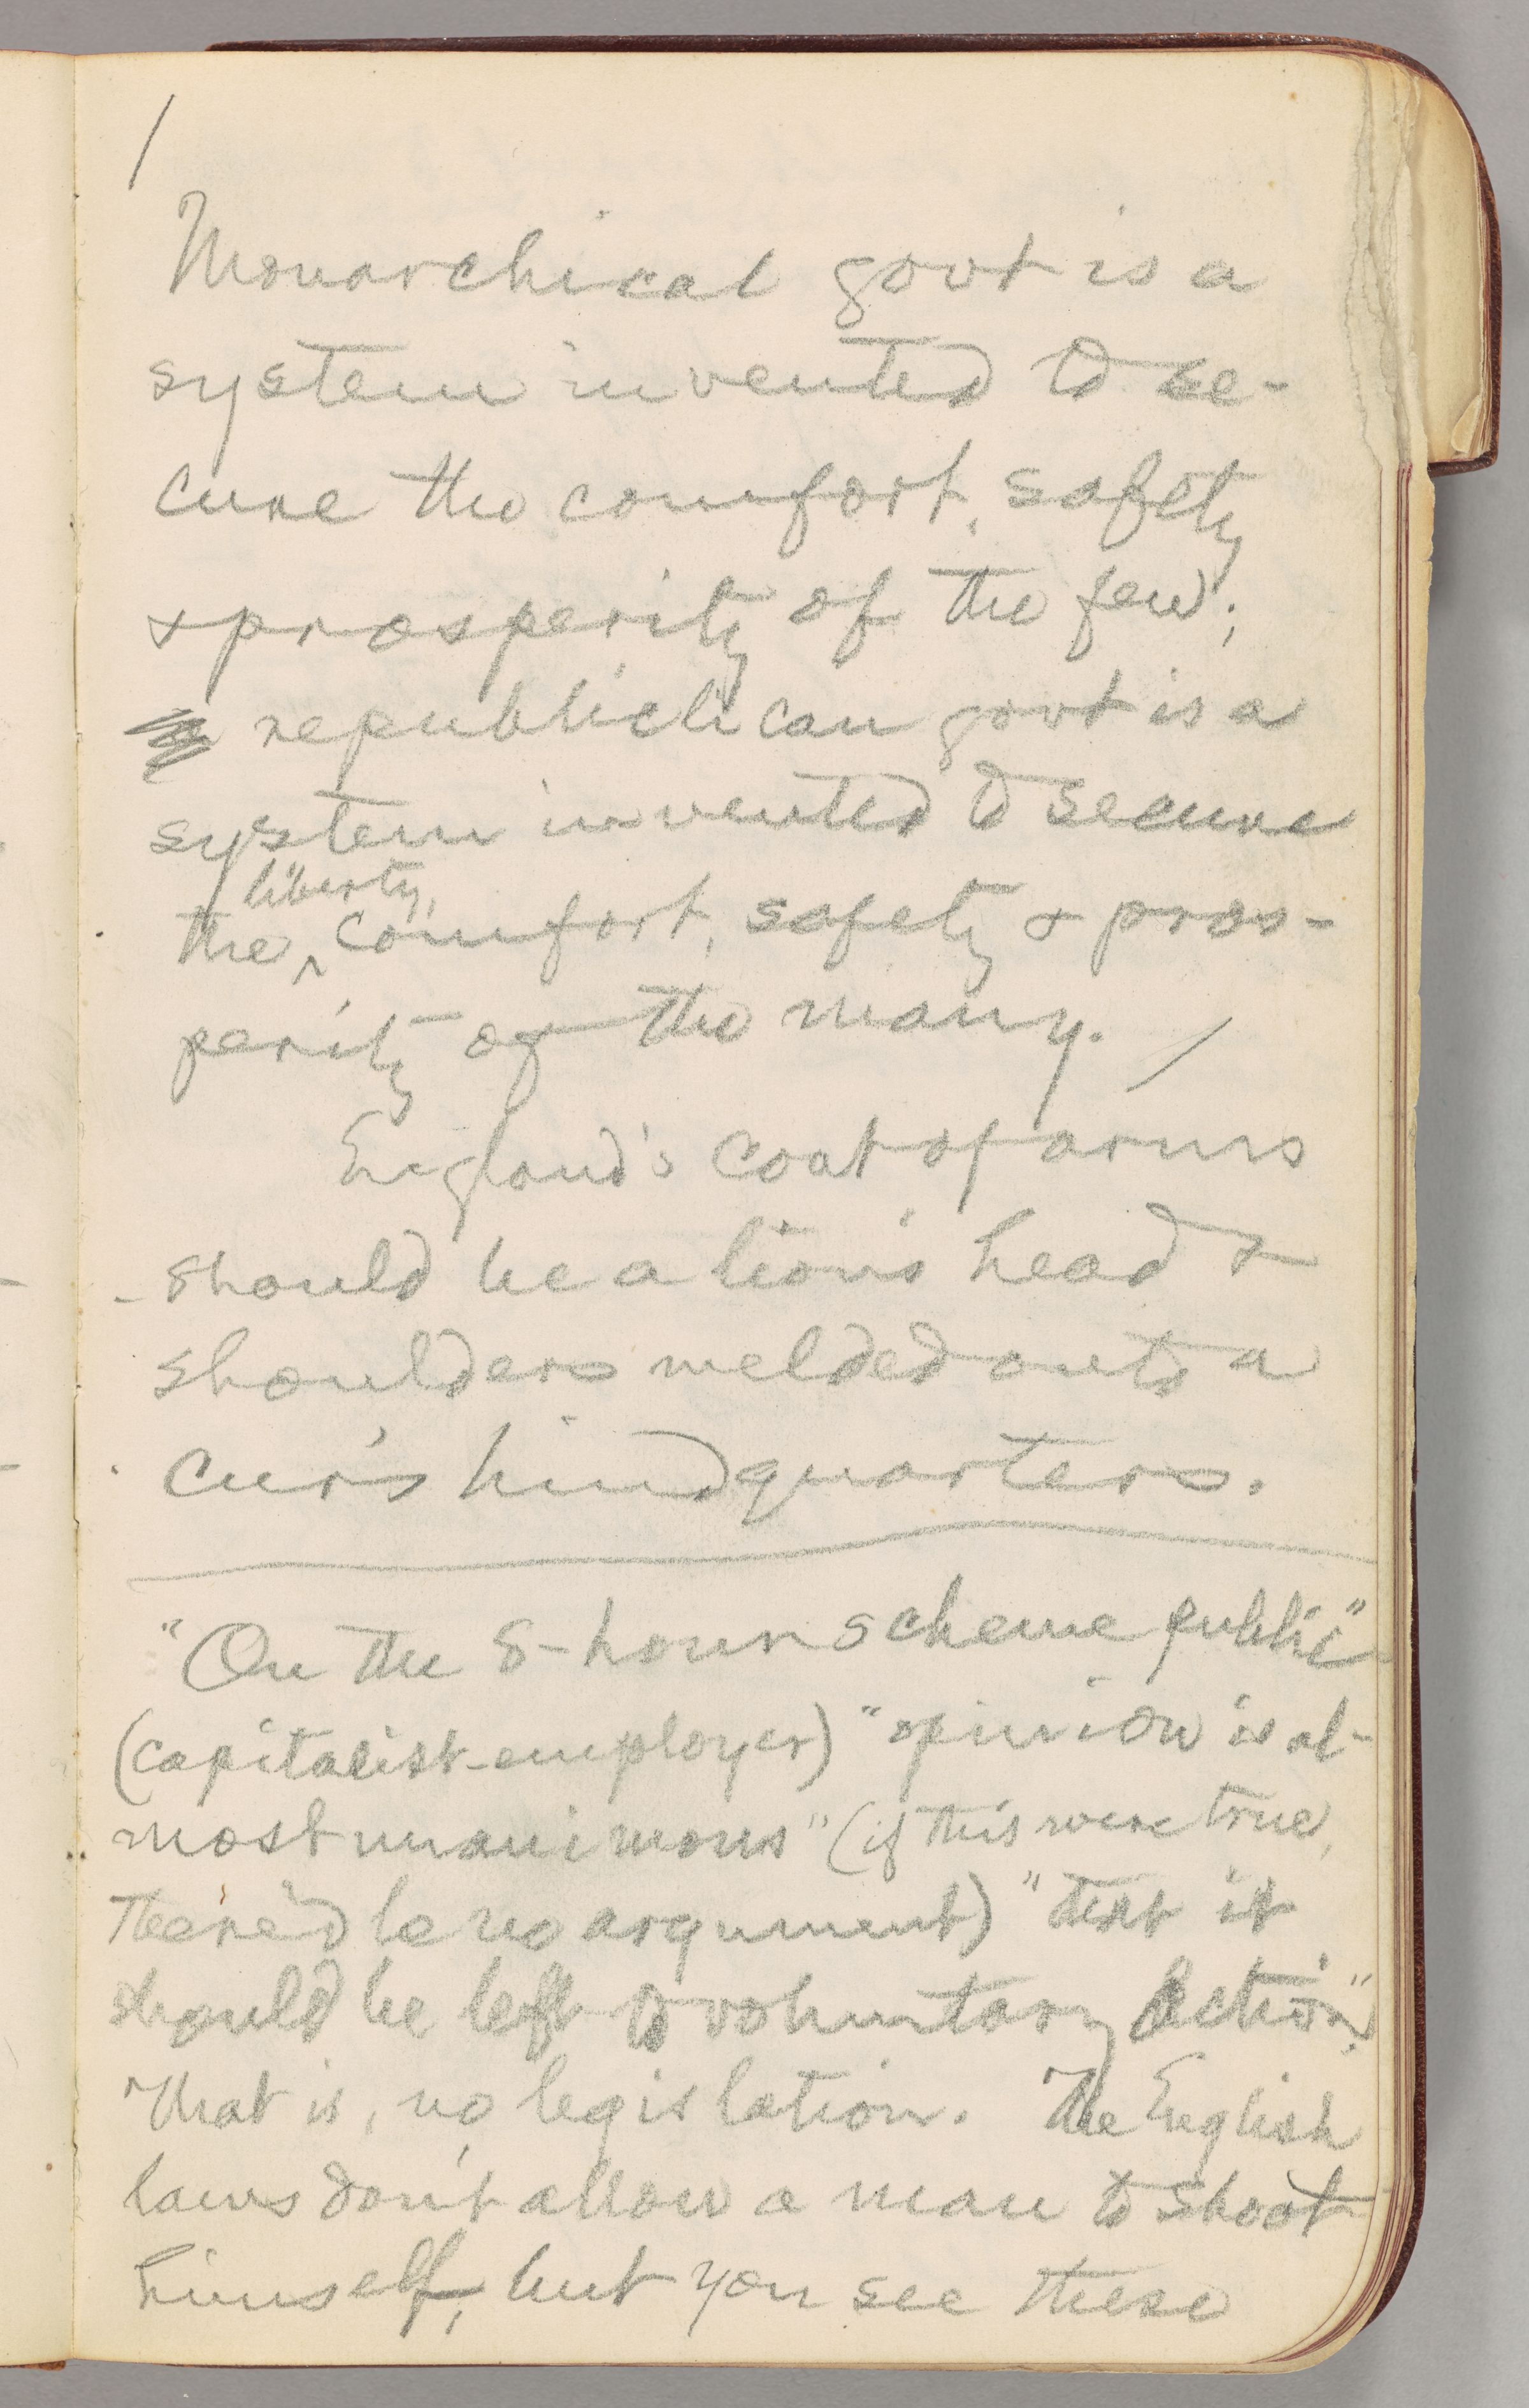 /
Monarchical govt is a
system invented to se-
cure the comfort, safety
& prosperity of the few;
republican govt is a
system invented to secure
liberty,
the ^ comfort, safety & pros-
perity of the many. /
England's coat of arms
should be a lion's head &
shoulders welded onto a
cur's hindquarters.
"On the 8-hour scheme public"
(capitalist-employer) "opinion is al-
most unanimous" (if this were true,
there'd be no argument) "that it
should be left to voluntary action."
That is, no legislation. The English
laws don't allow a man to shoot
himself, but you see these